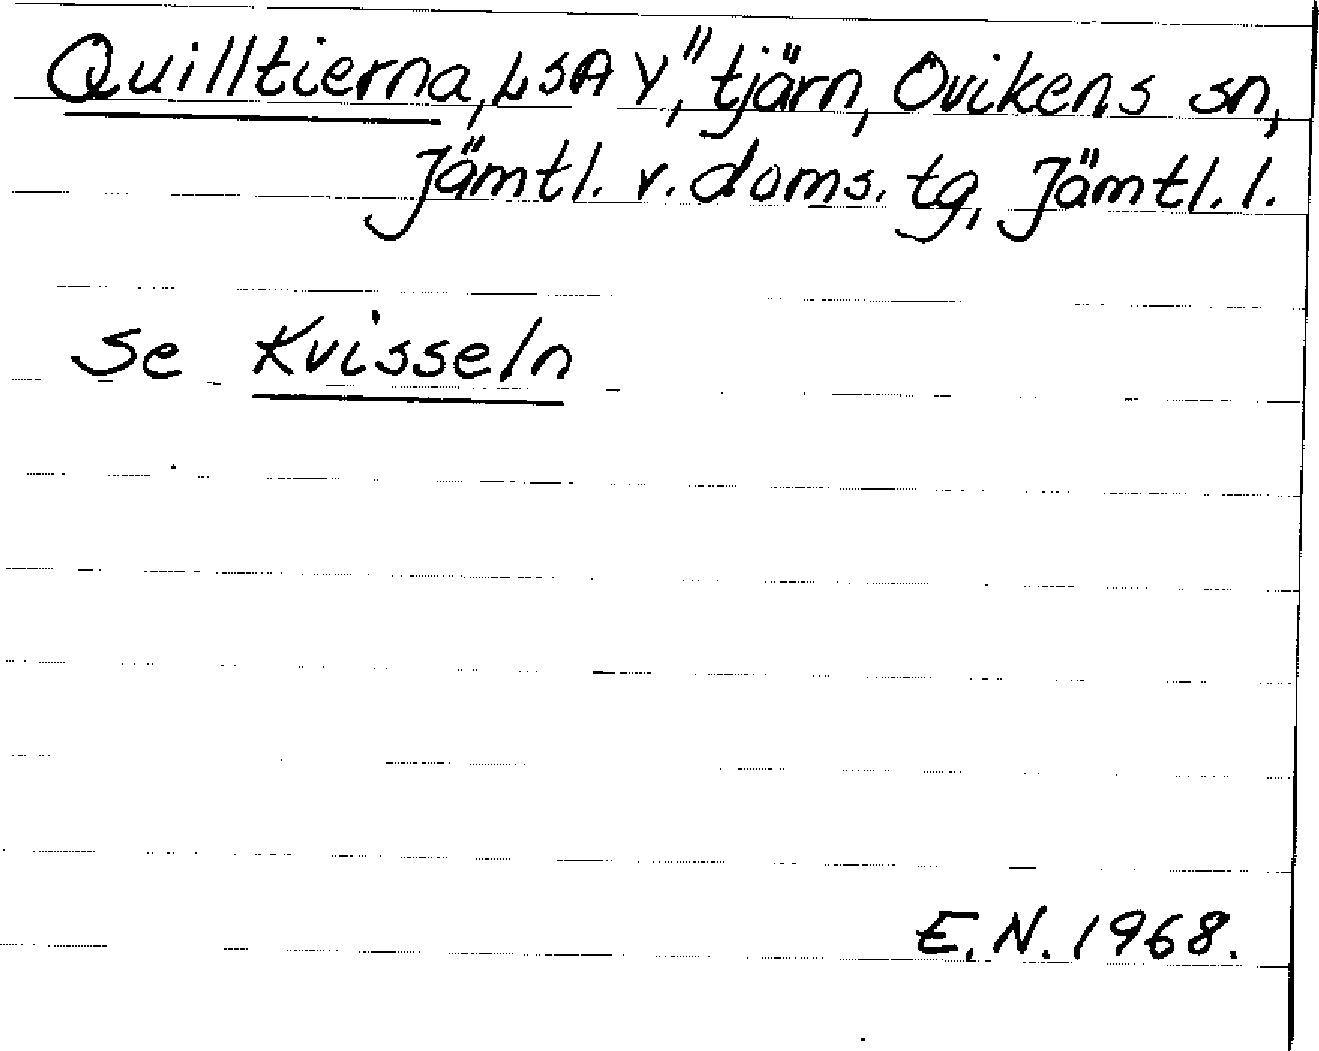 Quilltierna, LSA Y", tjärn, Ovikens sn,
Jämtl. v. doms. tg, Jämtl. l.
se Kvisseln
E.N. 1968.